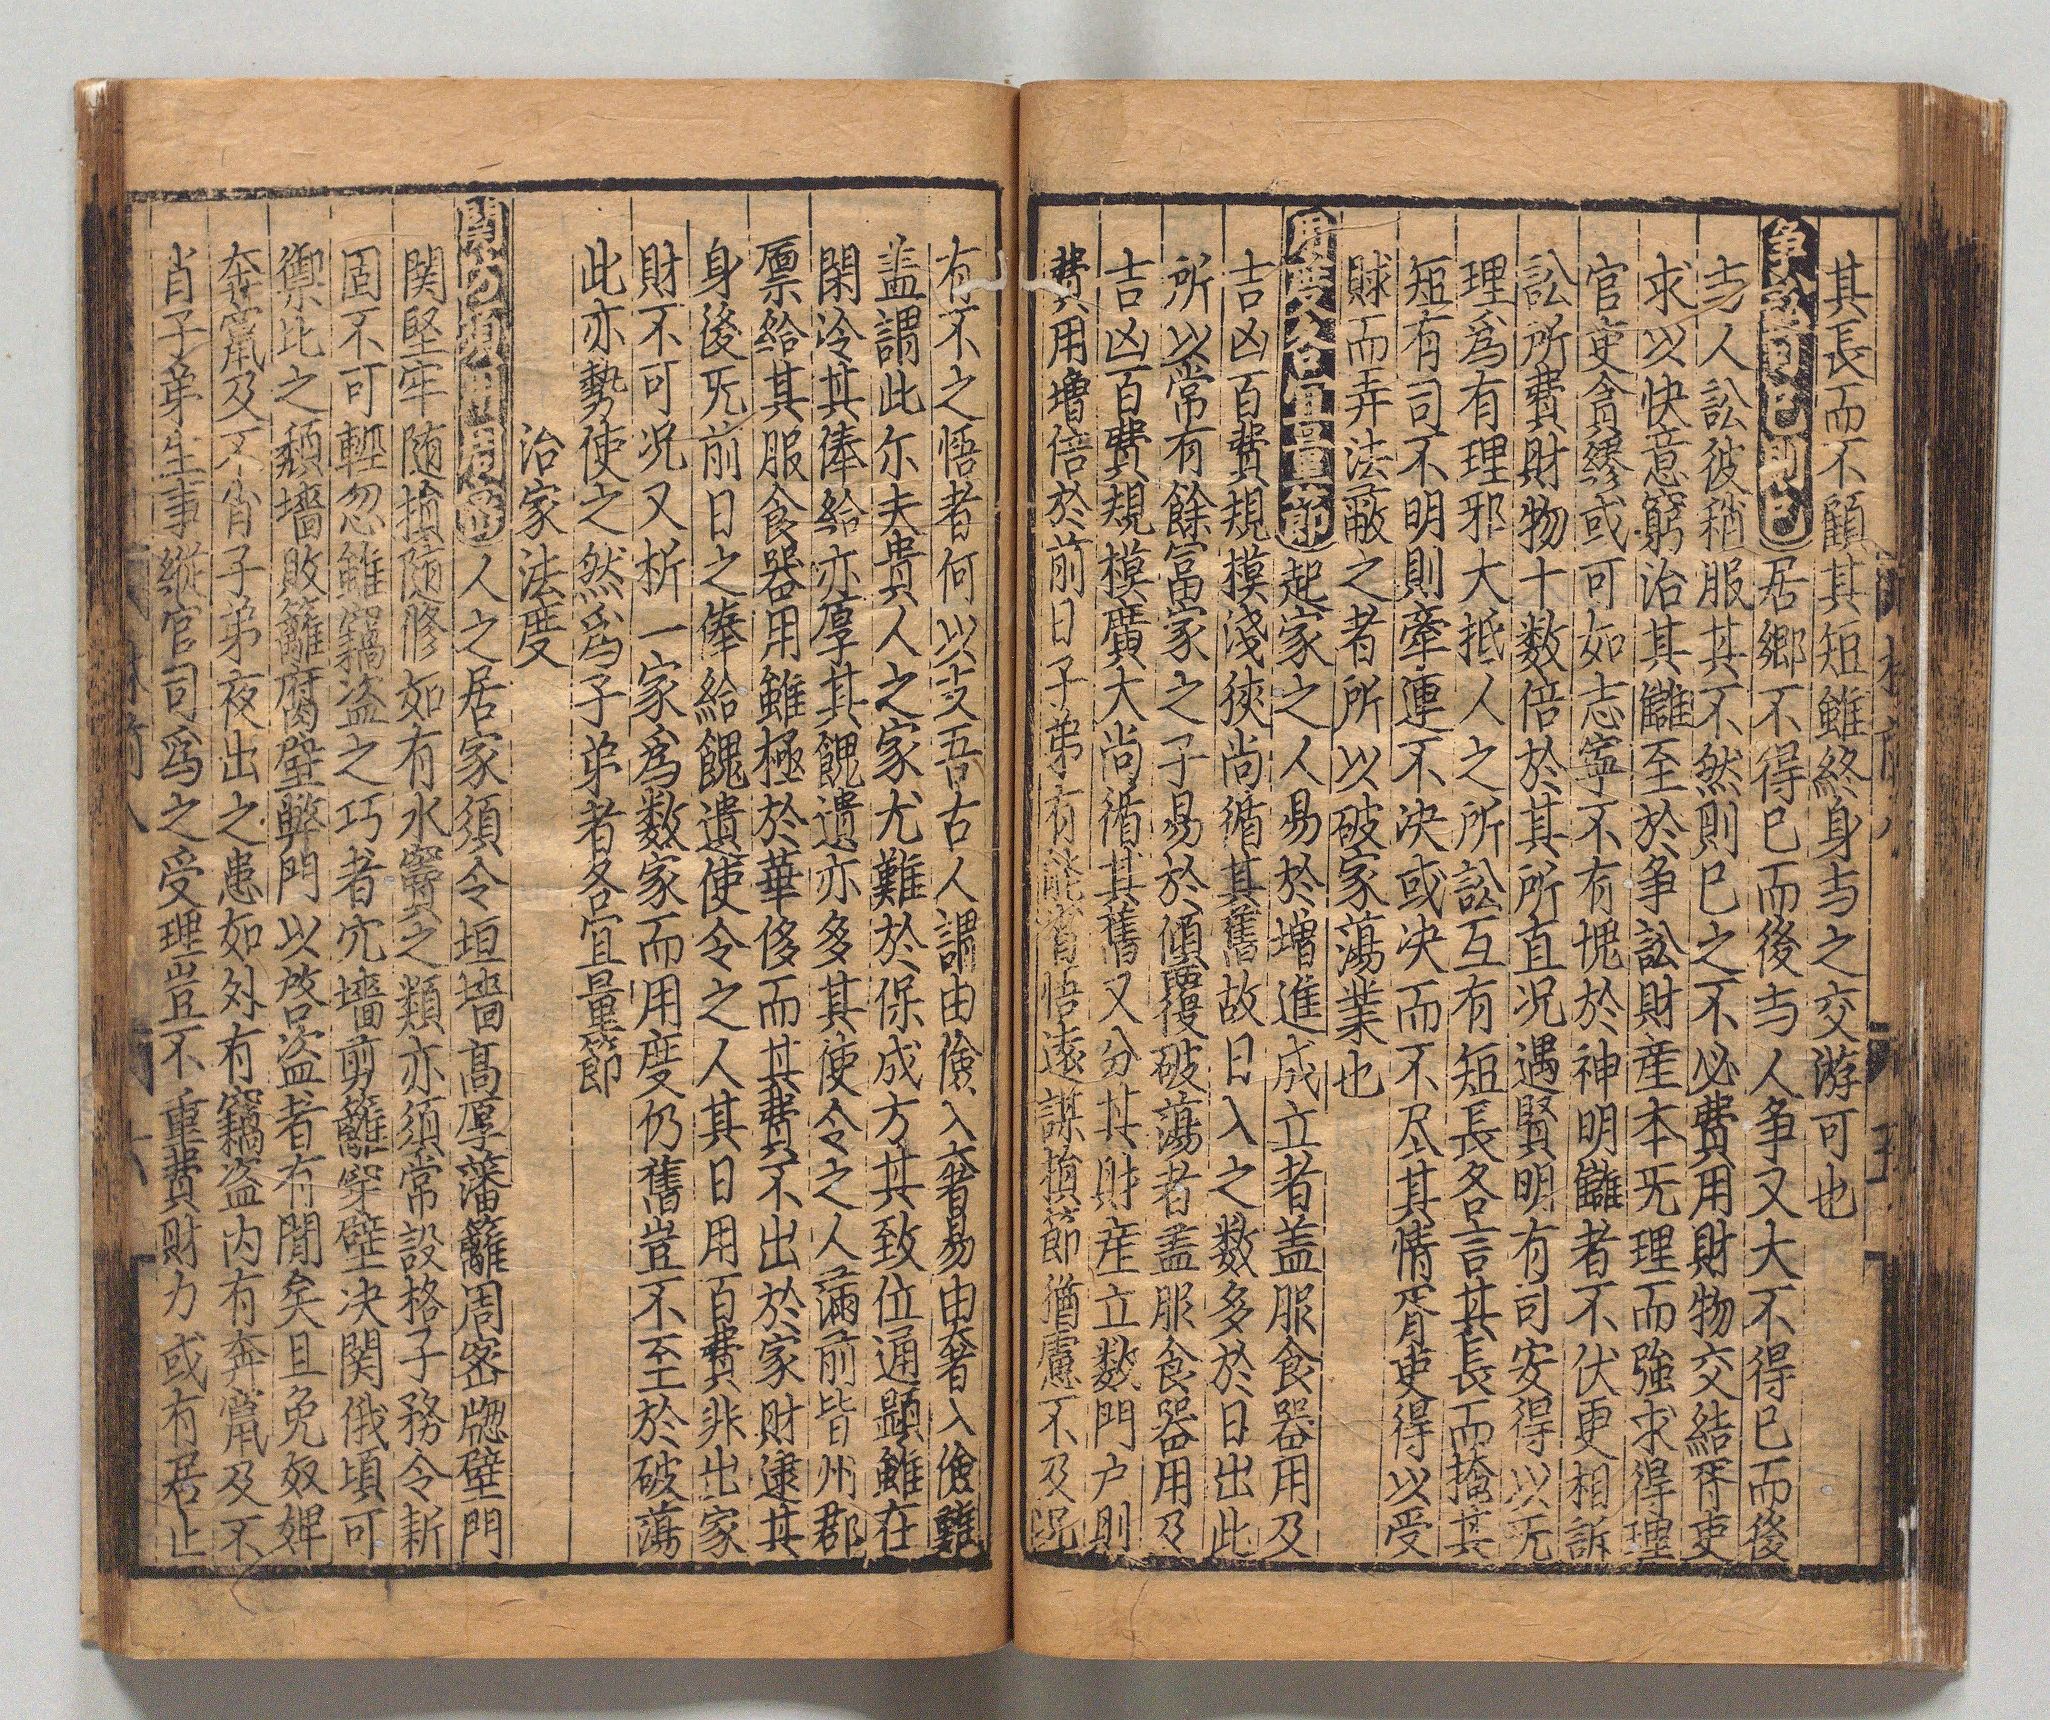 其長而不顧其短雖終身与之交游可也
争訟可已則已居鄉不得已而後与人争又大不得已而後
与人訟彼稍服其不然則已之不必費用財物交結胥吏
求以快意窮治其讎至於争訟財産本旡理而強求得理
官吏貪繆或可如志寧不有愧於神明讎者不伏更相訴
訟所費財物十数倍於其所直况遇賢明有司安得以旡
理爲有理邪大抵人之所訟互有短長各言其長而掩其
短有司不明則牽連不决或决而不尽其情胥吏得以受
財而弄法蔽之者所以破家蕩業也
用度各宜量節起家之人易於增進成立者盖服食器用及
吉凶百費規模淺狹尚循其舊故日入之数多於日出此
所以常有餘富家之子易於傾覆破蕩者盖服食器用及
吉凶百費規模廣大尚循其舊又分其財産立数門户則
費用增倍於前日子弟有能省悟遠謀損節猶慮不及况
有不之悟者何以支吾古人謂由儉入奢易由奢入儉難
盖謂此尔夫貴人之家尤難於保成方其致位通顯雖在
閑冷其俸給亦厚其餽遺亦多其使令之人滿前皆州郡
廪給其服食器用雖極於華侈而其費不出於家財逮其
身後旡前日之俸給餽遺使令之人其日用百費非出家
財不可况又析一家爲数家而用度仍舊豈不至於破蕩
此亦勢使之然爲子弟者各宜量節
治家法度
関防須用周密人之居家須令垣墻高厚藩籬周密牕壁門
関堅牢随損随修如有水竇之類亦須常設格子務令新
固不可輕忽雖竊盗之巧者穴墻剪籬穿壁决関俄頃可
禦比之頹墻敗籬腐壁弊門以啓盗者有間矣且免奴婢
奔竄及不肖子弟夜出之患如外有竊盗内有奔竄及不
肖子弟生事縱官司爲之受理豈不重費財力或有居止